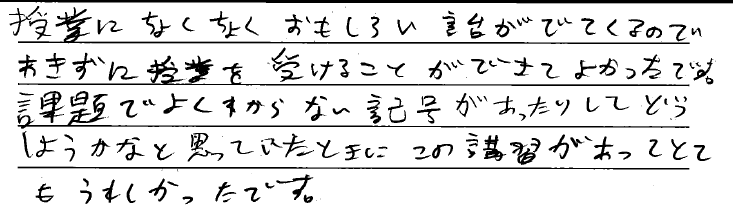 授業にちょくちょくおもしろい話がでてくるので
あきずに授業を受けることができてよかったです。
課題でよくわからない記号があったりしてどう
しようかなと思っていたときにこの講習があってとて
もうれしかったです。